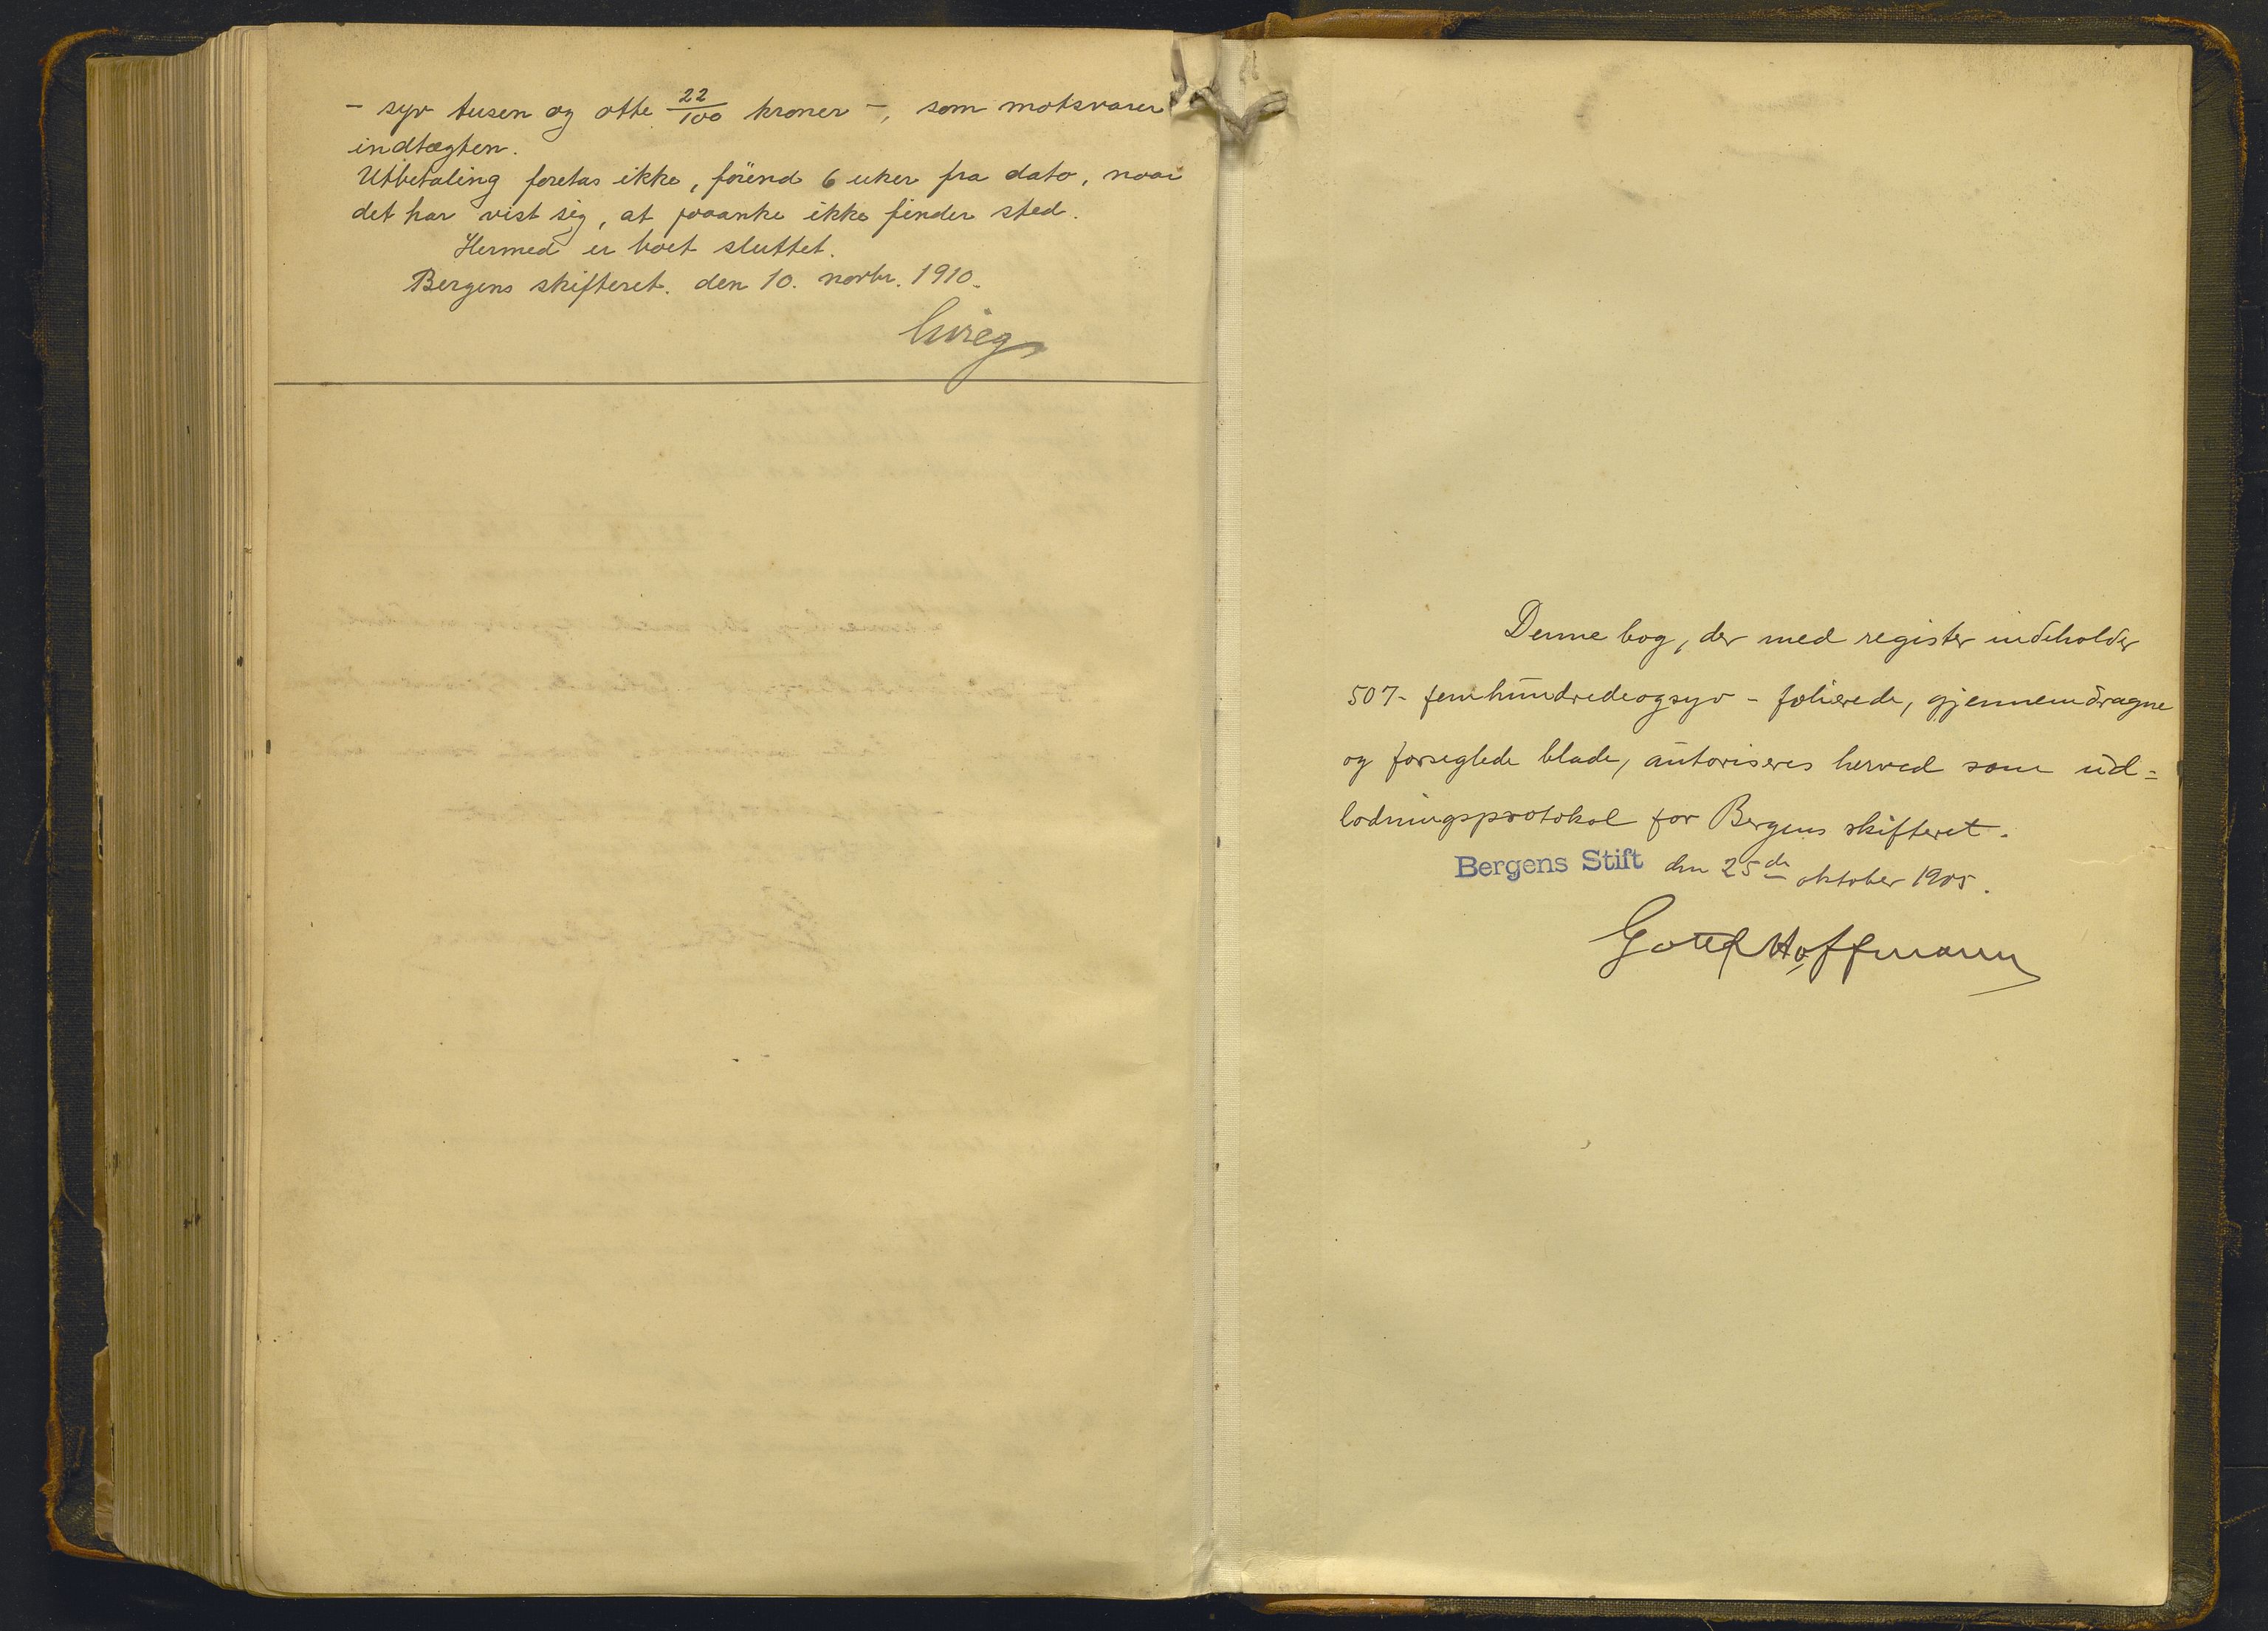 - syv tusen og otte 22/100 kroner -, som motsvarer
indtægten.
Utbetaling foretas ikke, förend 6 uker fra dato, naar
det har vist sig, at paaanke ikke finder sted.
Hermed er boet sluttet.
Bergens skifteret. den 10. novbr. 1910.
Denne bog, der med register indeholder
507 - femhundredeogsyv - folierede, gjennemdragne
og forseglede blade, autoriseres herved som ud=
lodningsprotokol for Bergens skifteret.
Bergens Stift den 25de oktober 1905.
Gottf Hoffmann